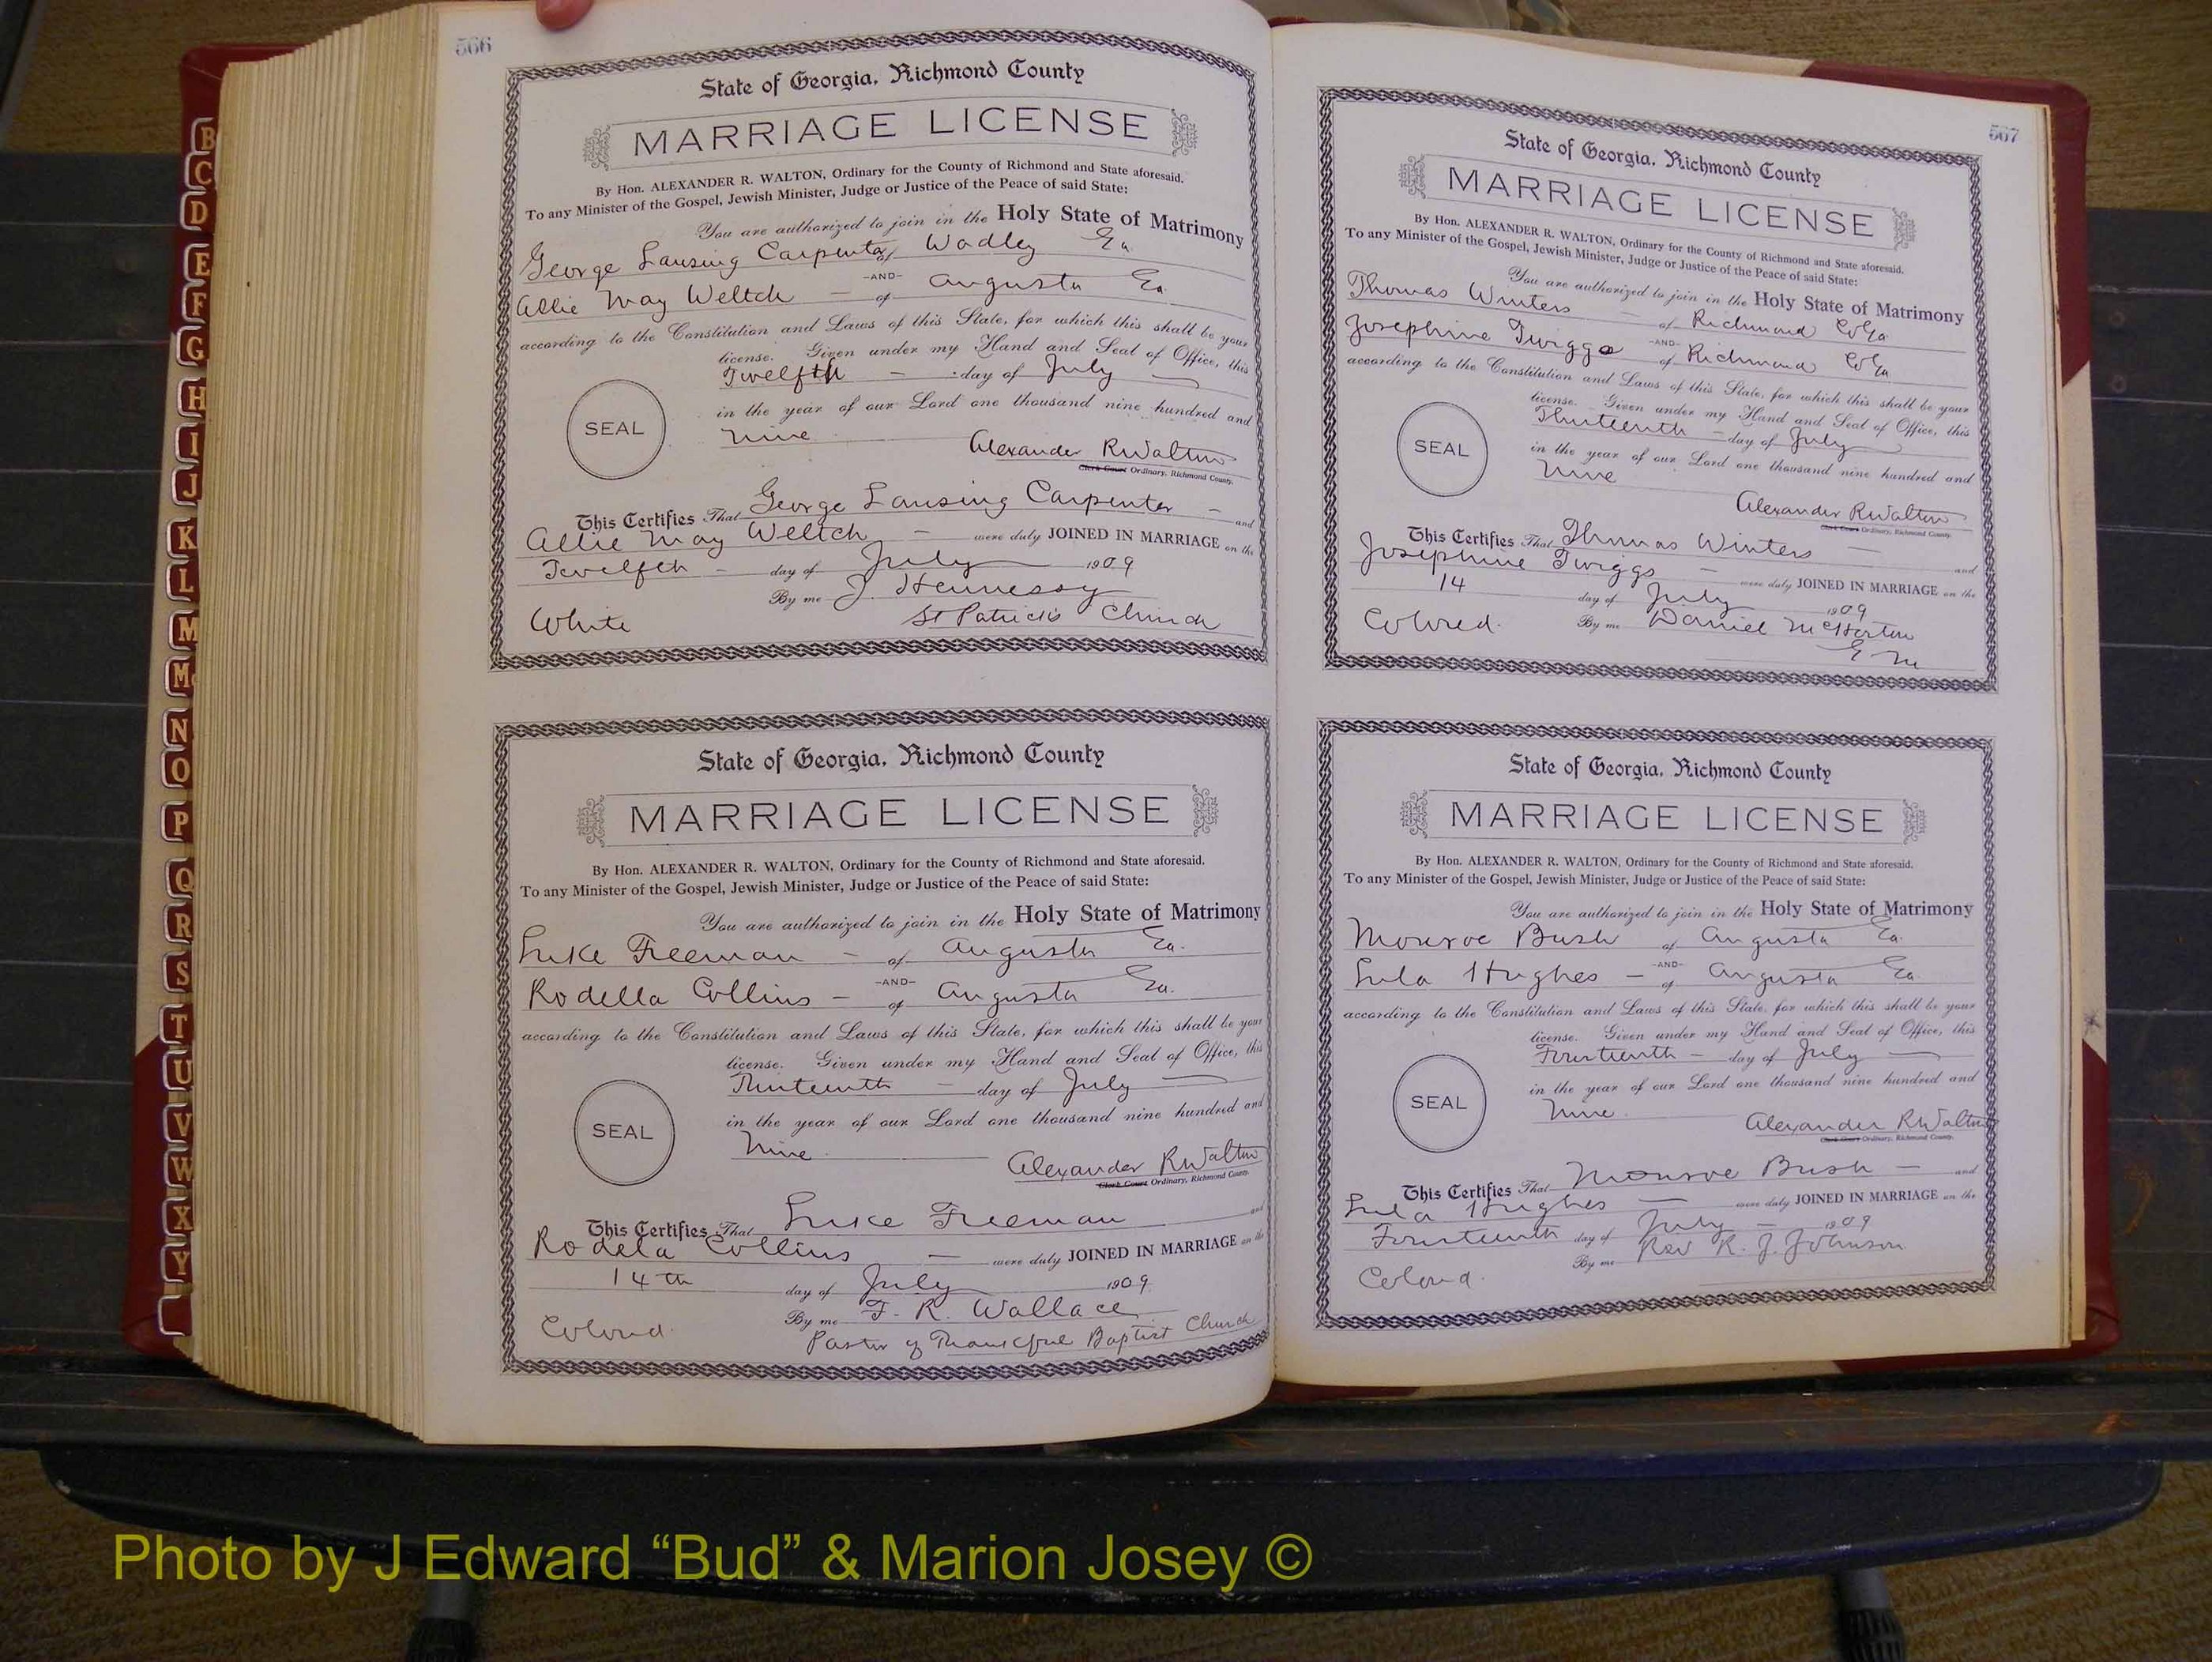 566
State of Georgia, Richmond County
MARRIAGE LICENSE
By Hon. ALEXANDER R. WALTON, Ordinary for the County of Richmond and State aforesaid.
To any Minister of the Gospel, Jewish Minister, Judge or Justice of the Peace of said State:
You are authorized to join in the Holy State of Matrimony
George Lansing Carpenter of Wadley Ga
-AND-
Allie May Weltch - of Augusta Ga
according to the Constitution and Laws of this State, for which this shall be your
license. Given under my Hand and Seal of Office, this
Twelfth - day of July
in the year of our Lord one thousand nine hundred and
SEAL
nine
Alexander R Walton
Clerk Court Ordinary, Richmond County.
This Certifies That George Lansing Carpenter - and
Allie May Weltch - were duly JOINED IN MARRIAGE on the
Twelfth - day of July 1909
By me J. Hennessy
White St Patricks Church
State of Georgia, Richmond County
MARRIAGE LICENSE
By Hon. ALEXANDER R. WALTON, Ordinary for the County of Richmond and State aforesaid.
To any Minister of the Gospel, Jewish Minister, Judge or Justice of the Peace of said State:
You are authorized to join in the Holy State of Matrimony
Luke Freeman - of Augusta Ga.
-AND-
Rodella Collins - of Augusta Ga.
according to the Constitution and Laws of this State, for which this shall be your
license. Given under my Hand and Seal of Office, this
Thirteenth - day of July
in the year of our Lord one thousand nine hundred and
SEAL
nine
Alexander R Walton
Clerk Court Ordinary, Richmond County.
This Certifies That Luke Freeman and
Rodela Collins - were duly JOINED IN MARRIAGE on the
14th day of July 1909
By me T. R. Wallace
Colored. Pastor of Thankful Baptist Church
567
State of Georgia, Richmond County
MARRIAGE LICENSE
By Hon. ALEXANDER R. WALTON, Ordinary for the County of Richmond and State aforesaid.
To any Minister of the Gospel, Jewish Minister, Judge or Justice of the Peace of said State:
You are authorized to join in the Holy State of Matrimony
Thomas Winters - of Richmond Co Ga
-AND-
Josephine Twiggs of Richmond Co Ga
according to the Constitution and Laws of this State, for which this shall be your
license. Given under my Hand and Seal of Office, this
Thirteenth - day of July
in the year of our Lord one thousand nine hundred and
SEAL
Nine
Alexander R Walton
Clerk Court Ordinary, Richmond County.
This Certifies That Thomas Winters - and
Josephine Twiggs - were duly JOINED IN MARRIAGE on the
14 day of July 1909
Colored. By me Daniel McHorton
State of Georgia, Richmond County
MARRIAGE LICENSE
By Hon. ALEXANDER R. WALTON, Ordinary for the County of Richmond and State aforesaid.
To any Minister of the Gospel, Jewish Minister, Judge or Justice of the Peace of said State:
You are authorized to join in the Holy State of Matrimony
Monroe Bush of Augusta Ga.
-AND-
Lula Hughes - of Augusta Ga
according to the Constitution and Laws of this State, for which this shall be your
license. Given under my Hand and Seal of Office, this
Fourteenth - day of July
in the year of our Lord one thousand nine hundred and
SEAL
Nine.
Alexander R Walton
Clerk Court Ordinary, Richmond County.
This Certifies That Monroe Bush - and
Lula Hughes - were duly JOINED IN MARRIAGE on the
Fourteenth day of July - 1909
By me Rev R. J. Johnson
Colored.
B
C
D
E
F
G
H
I
J
K
L
M
Mc
N
O
P
Q
R
S
T
U
V
W
X
Y
Photo by J Edward “Bud” & Marion Josey ©